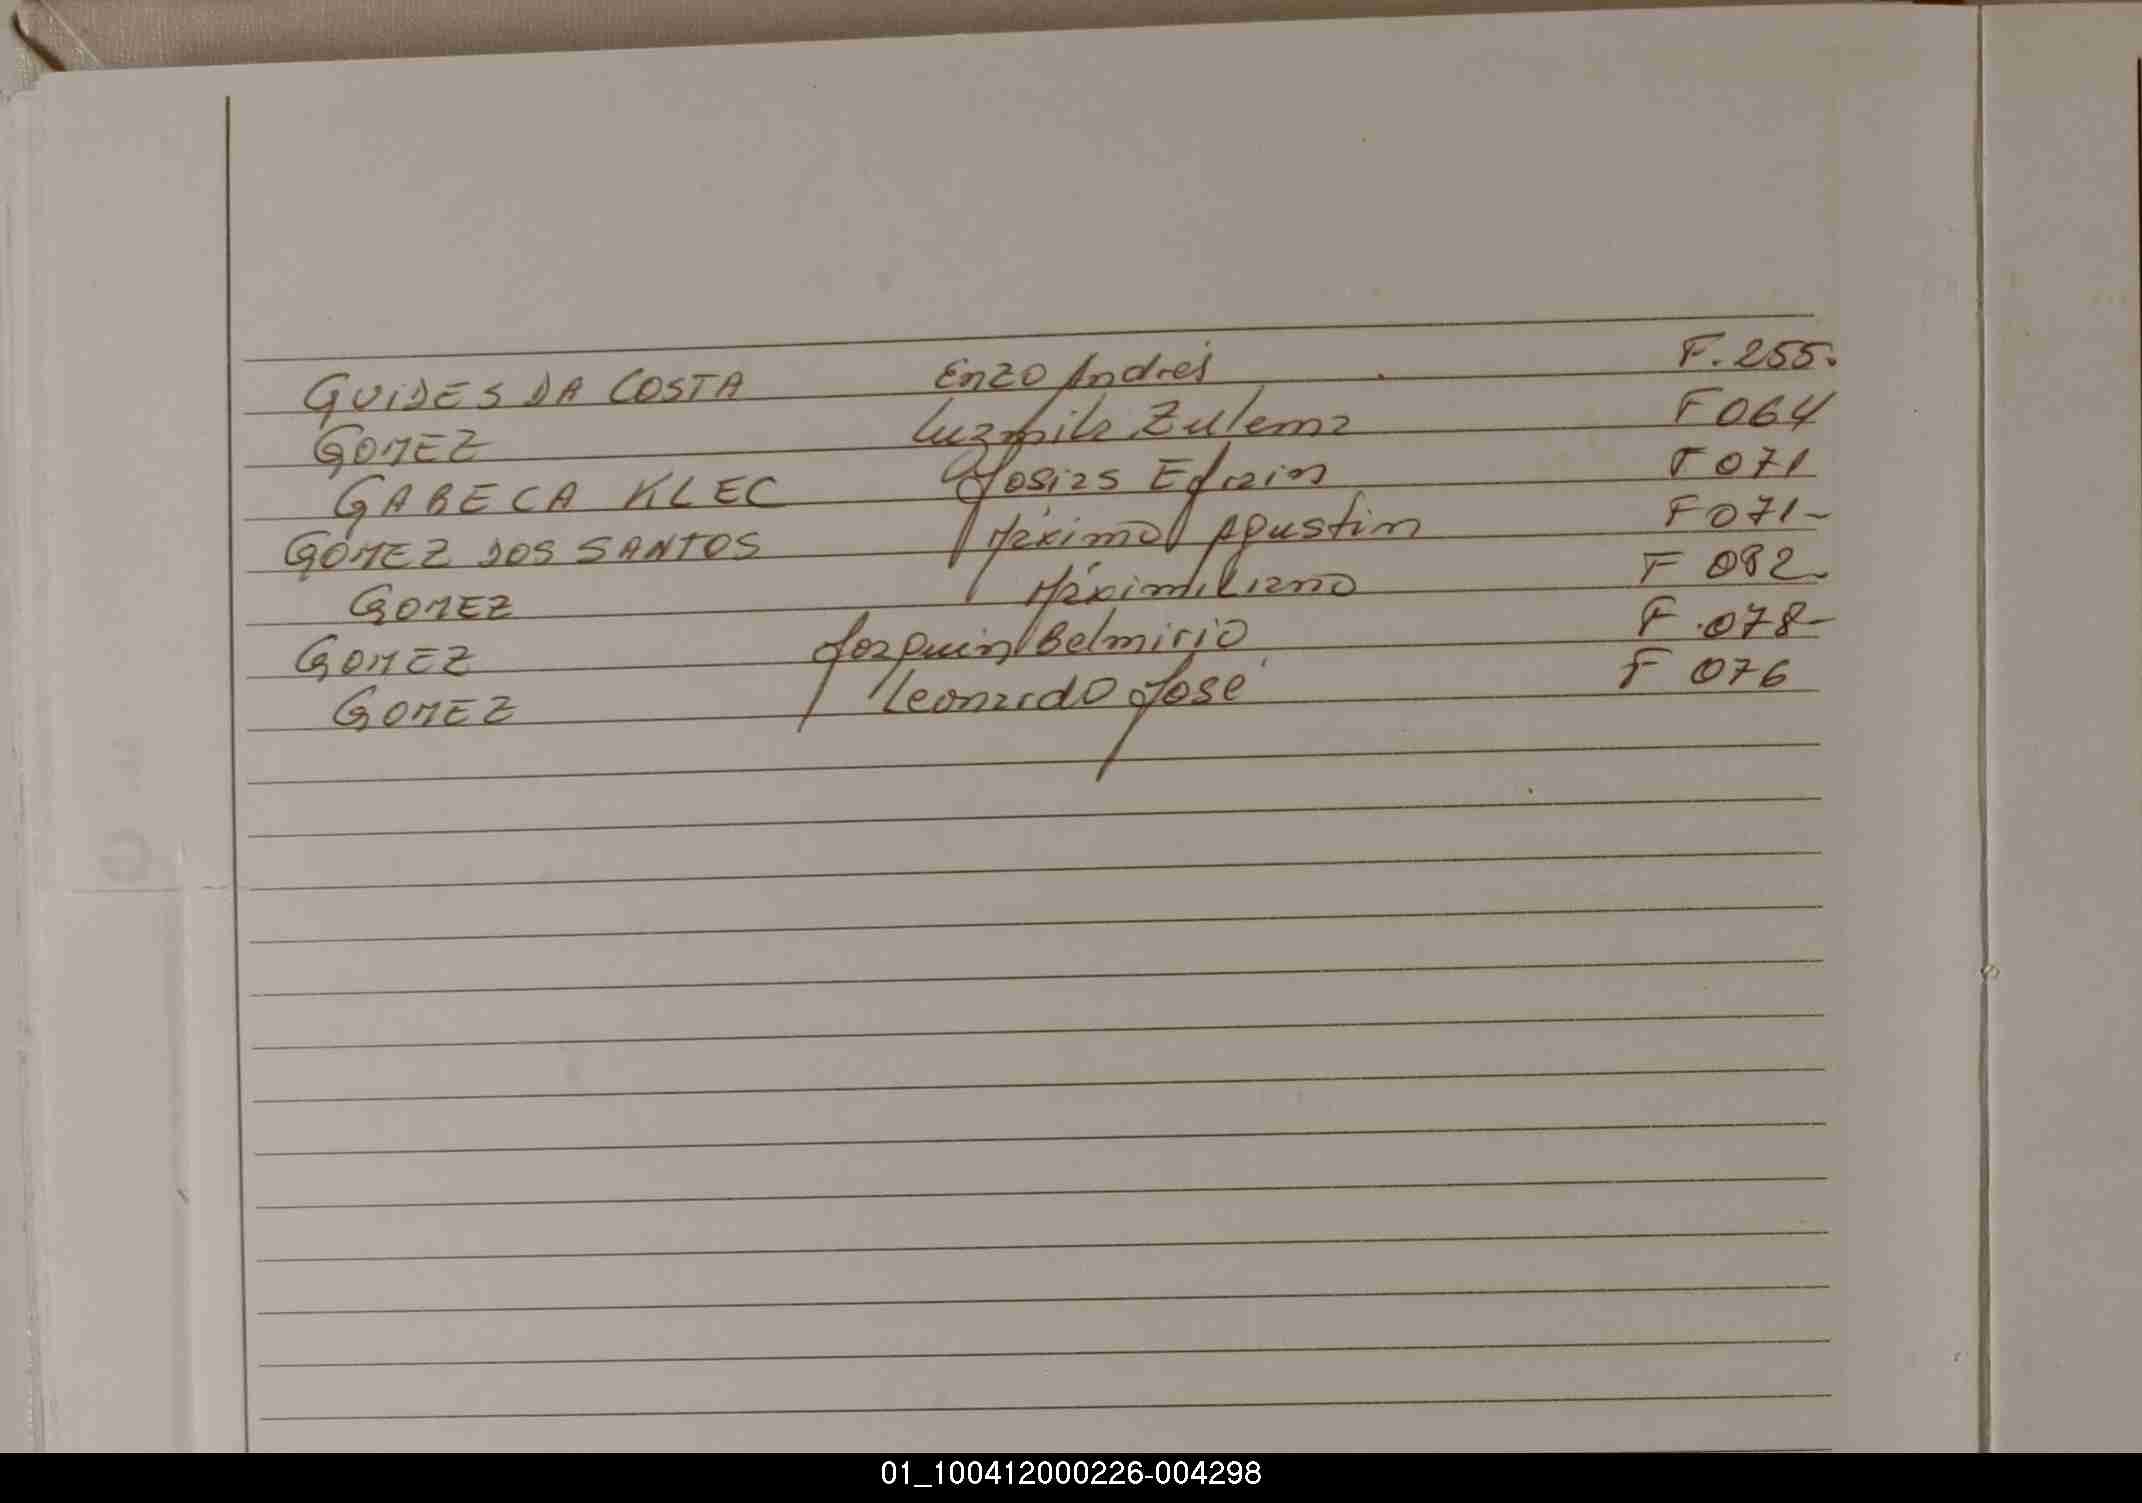 GUIDES DA COSTA Enzo Andrés F. 255.
GOMEZ Luzmila Zulema F 064
GABECA KLEC Josias Efrain F 071
GOMEZ DOS SANTOS Máximo Agustin F 071-
GOMEZ Máximiliano F 082-
GOMEZ Joaquin Belmirio F. 078-
GOMEZ Leonardo José F 076
01_100412000226-004298